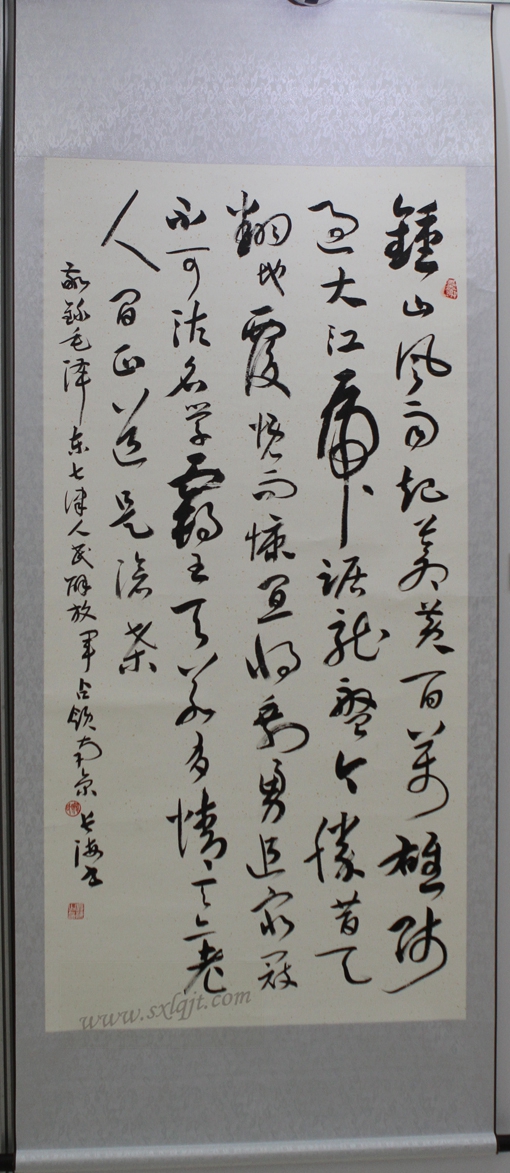 鍾山风雨起蒼黄百萬雄师
过大江虎踞龙盘今勝昔天
翻地覆慨而慷宜将剩勇追穷寇
不可沽名学霸王天若有情天亦老
人间正道是滄桒
敬録毛泽东七律人民解放军占领南京 长海书
www.sxlqjt.com